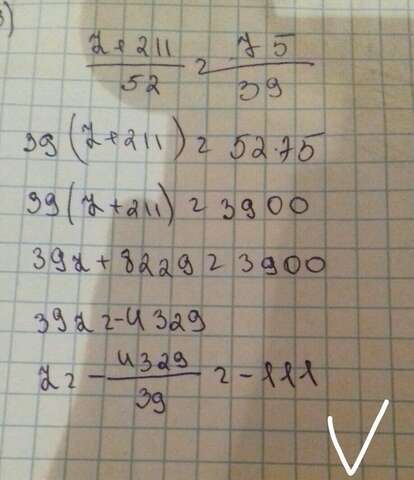 )
z + 211 / 52 = 75 / 39
39 (z + 211) = 52·75
39 (z + 211) = 3900
39z + 8229 = 3900
39z = -4329
z = - 4329 / 39 = - 111